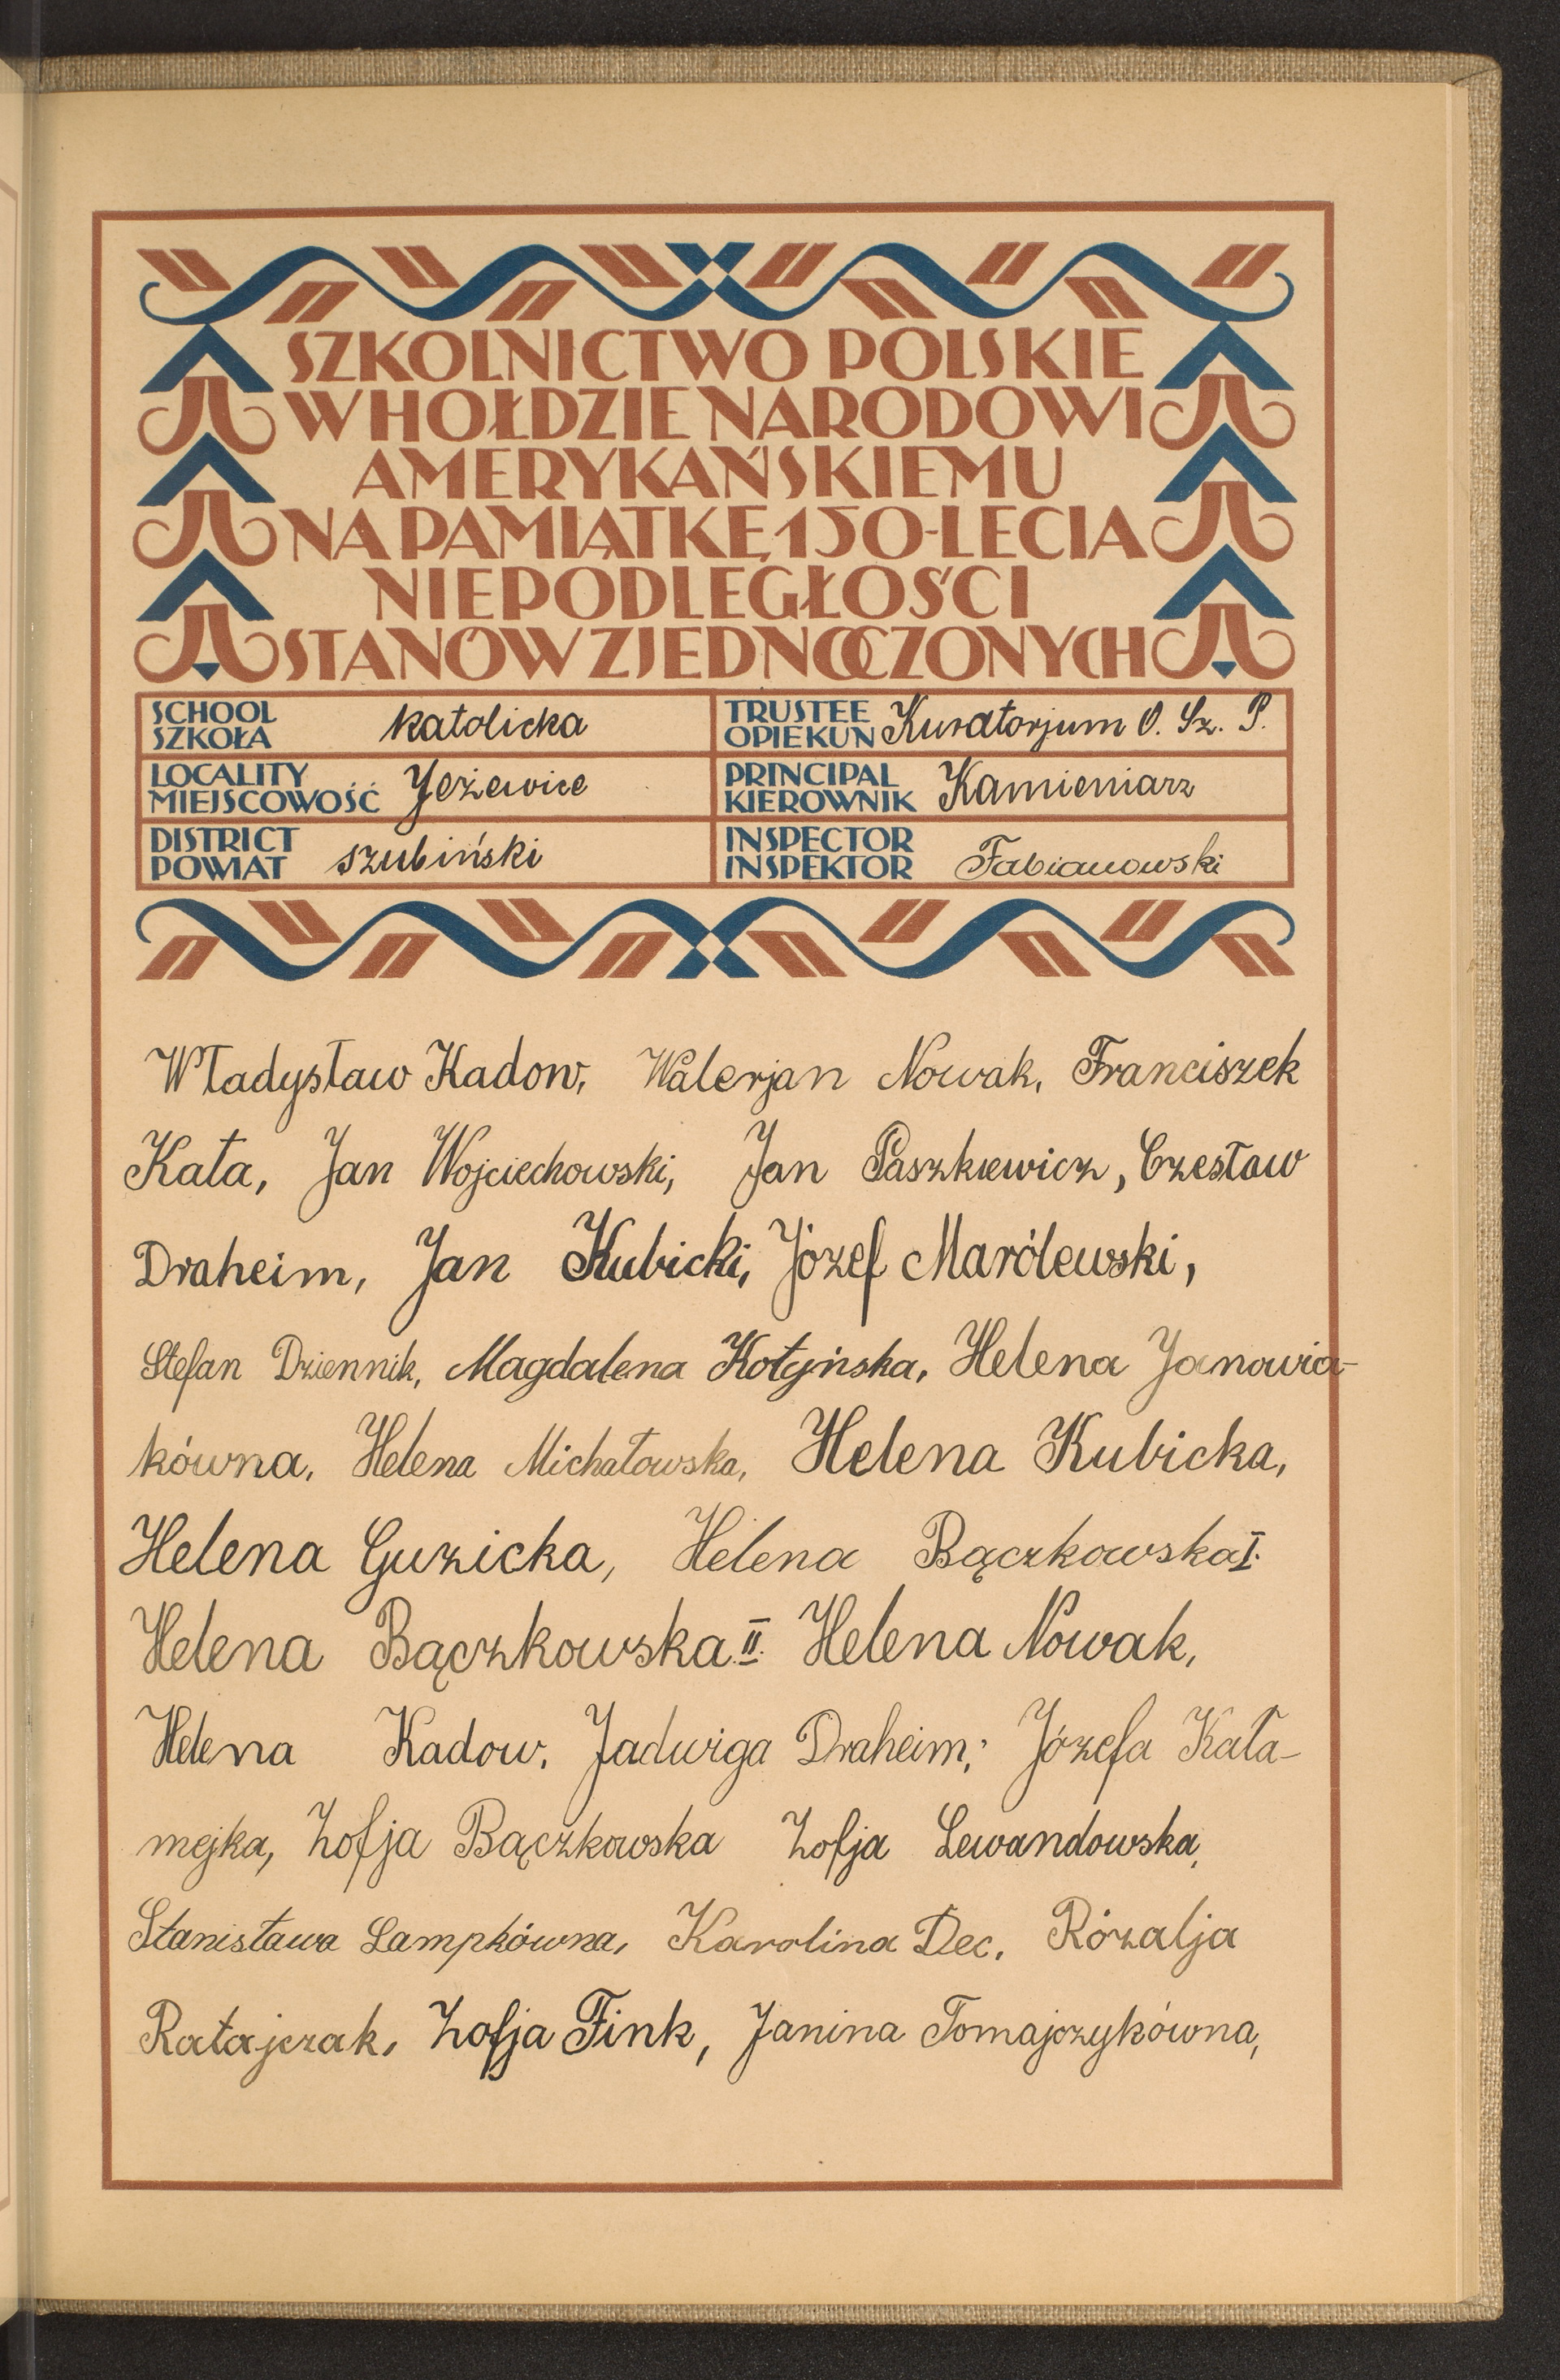 SZKOLNICTWO POLSKIE
W HOŁDZIE NARODOWI
AMERYKAŃSKIEMU
NA PAMIĄTKĘ 150-LECIA
NIEPODLEGŁOŚCI
STANÓW ZJEDNOCZONYCH
SCHOOL
SZKOŁA
katolicka
TRUSTEE
OPIEKUN
Kuratorjum O. Sz. P.
LOCALITY
MIEJSCOWOŚĆ
Jeżewice
PRINCIPAL
KIEROWNIK
Kamieniarz
DISTRICT
POWIAT
szubiński
INSPECTOR
INSPEKTOR
Fabianowski
Władysław Kadow, Walerjan Nowak, Franciszek
Kała, Jan Wojciechowski, Jan Paszkiewicz, Czesław
Draheim, Jan Kubicki, Józef Marólewski,
Stefan Dziennik, Magdalena Kołyńska, Helena Janowia-
kówna, Helena Michałowska, Helena Kubicka,
Helena Guzicka, Helena Bączkowska I.
Helena Bączkowska II. Helena Nowak,
Helena Kadow, Jadwiga Draheim, Józefa Kała-
mejka, Zofja Bączkowska Zofja Lewandowska,
Stanisława Lampkówna, Karolina Dec, Rózalja
Ratajczak, Zofja Fink, Janina Tomajczykówna,